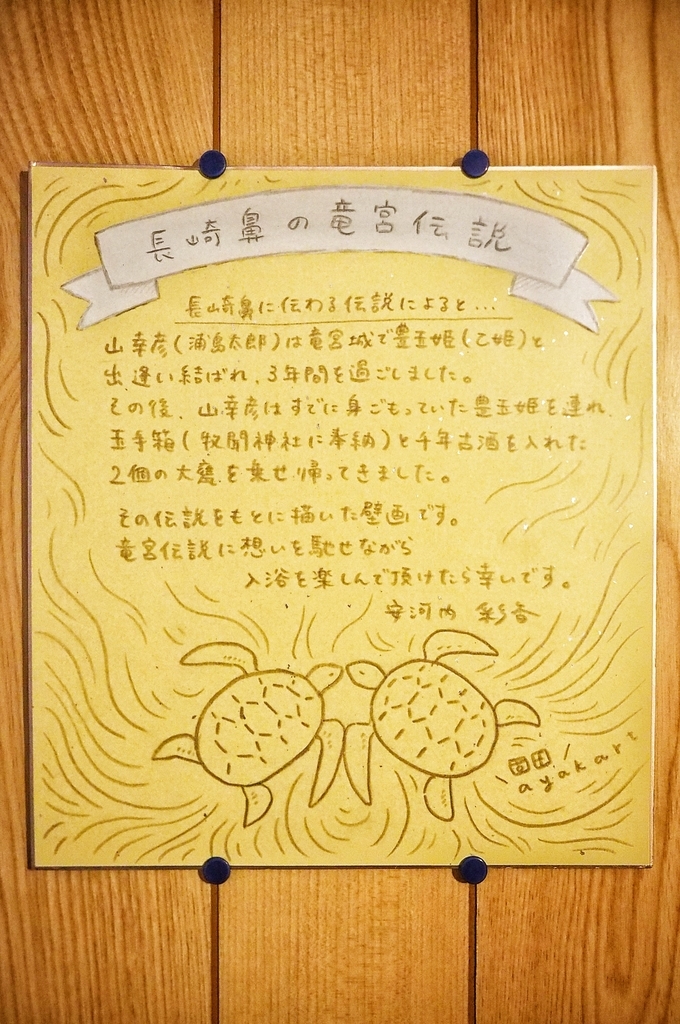 長崎鼻の竜宮伝説
長崎鼻に伝わる伝説によると...
山幸彦(浦島太郎)は竜宮城で豊玉姫(乙姫)と
出逢い結ばれ、3年間を過ごしました。
その後、山幸彦はすでに身ごもっていた豊玉姫を連れ、
玉手箱(牧聞神社に奉納)と千年古酒を入れた
2個の大甕を乗せ帰ってきました。
その伝説をもとに描いた壁画です。
竜宮伝説に想いを馳せながら
入浴を楽しんで頂けたら幸いです。
安河内 彩香
ayakart